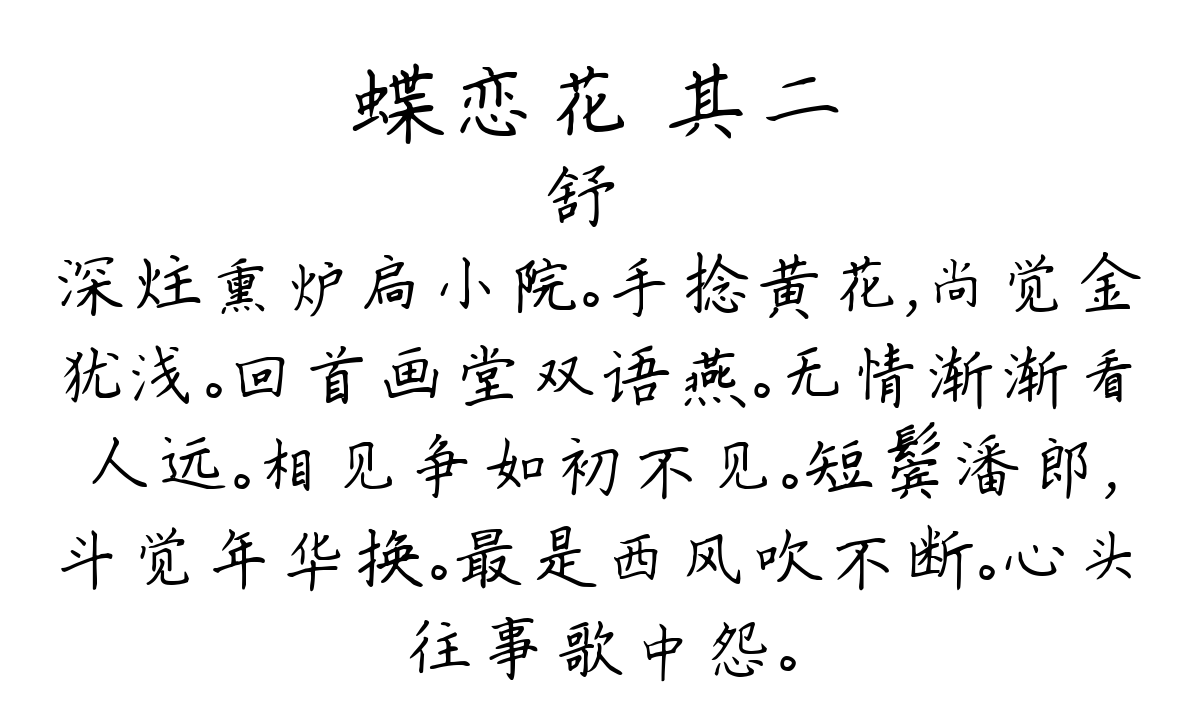 蝶恋花 其二
舒
深炷熏炉扃小院。手捻黄花,尚觉金
犹浅。回首画堂双语燕。无情渐渐看
人远。相见争如初不见。短鬓潘郎,
斗觉年华换。最是西风吹不断。心头
往事歌中怨。